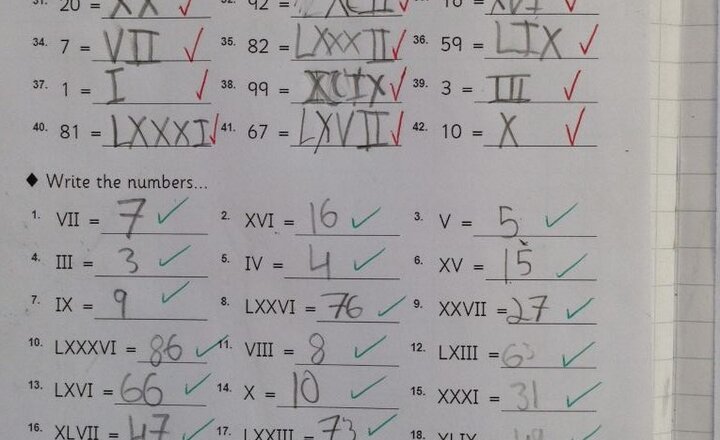 31. 20 = XX 32. 92 = XCII 16 = XVI
34. 7 = VII 35. 82 = LXXXII 36. 59 = LIX
37. 1 = I 38. 99 = XCIX 39. 3 = III
40. 81 = LXXXI 41. 67 = LXVII 42. 10 = X
◆ Write the numbers...
1. VII = 7 2. XVI = 16 3. V = 5
4. III = 3 5. IV = 4 6. XV = 15
7. IX = 9 8. LXXVI = 76 9. XXVII = 27
10. LXXXVI = 86 11. VIII = 8 12. LXIII = 63
13. LXVI = 66 14. X = 10 15. XXXI = 31
16. XLVII = 47 17. LXXIII = 73 18. XLIX = 49